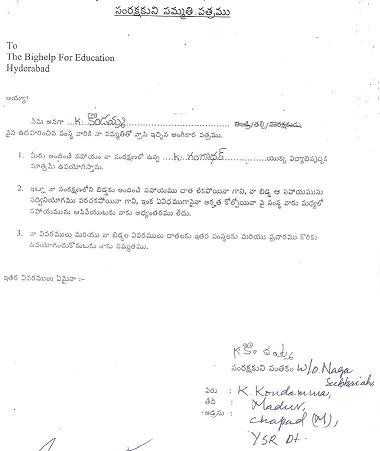 సంరక్షకుని సమ్మతి పత్రము
To
The Bighelp For Education
Hyderabad
అయ్యా!
నేను అనగా ...K. కొండమ్మ... తండ్రి/తల్లి/సంరక్షకుడు
పైన ఉదహరించిన సంస్థ వారికి నా సమ్మతితో వ్రాసి ఇచ్చిన అంగీకార పత్రము.
1. మీరు అందించే సహాయం నా సంరక్షణలో ఉన్న ...K. గంగాధర్... యొక్క విద్యాభివృద్ధికి
మాత్రమే ఉపయోగిస్తాను.
2. ఇట్లా నా సంరక్షణలోని బిడ్డకు అందించే సహాయము దాత లేకపోయినా గాని, నా బిడ్డ ఆ సహాయమును
సద్వినియోగము పరచకపోయినా గాని, ఇంక ఏవిధముగానైనా అర్హత కోల్పోయినా పై సంస్థ వారు మధ్యలో
సహాయమును ఆపివేయుటకు నాకు అభ్యంతరము లేదు.
3. నా వివరములు మరియు నా బిడ్డల వివరములు దాతలకు ఇతర సంస్థలకు మరియు ప్రచారము కొరకు
ఉపయోగించుకొనుటకు నాకు సమ్మతము.
ఇతర వివరములు ఏమైనా :-
K కొండమ్మ
సంరక్షకుని సంతకం W/O. Naga
Subbaiah
పేరు : K. Kondamma,
తేది : Madur,
అడ్రసు : Chapad (M),
YSR Dt.